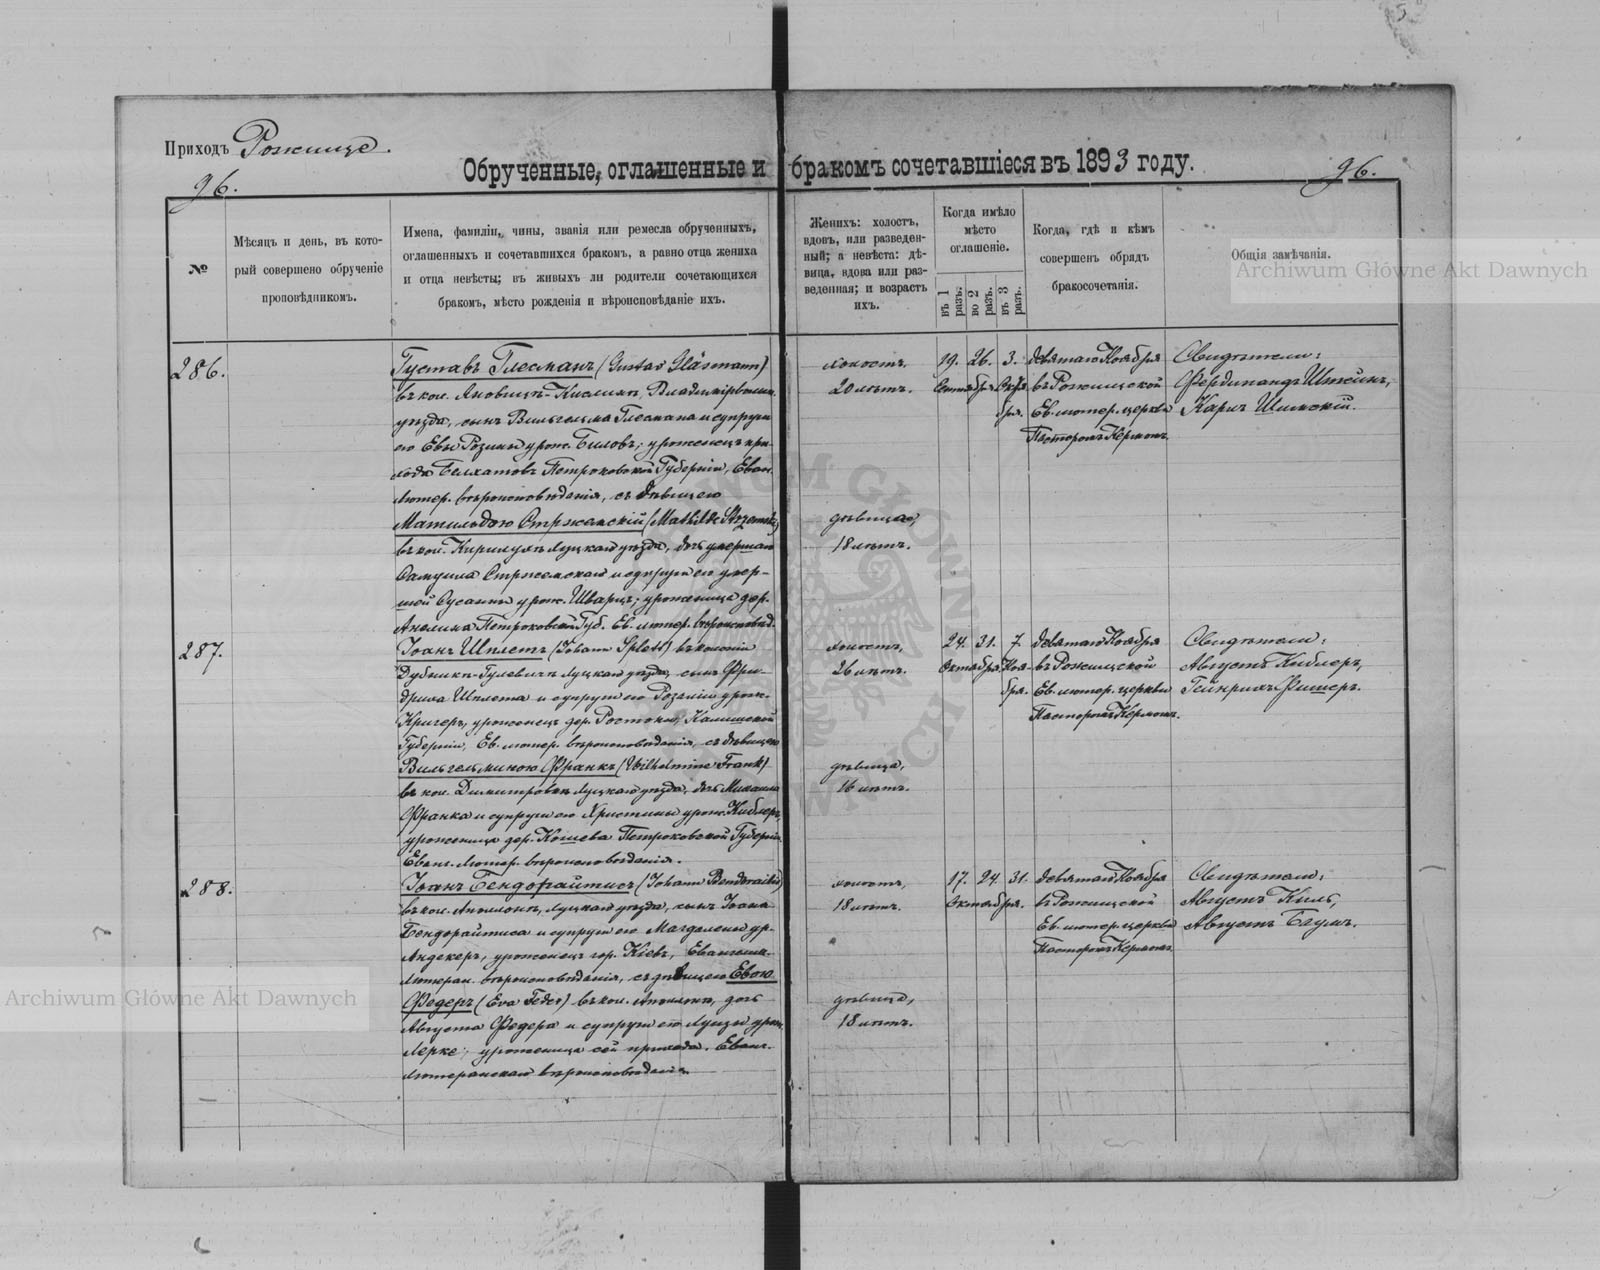 Приходъ Рожище.
96.
Обрученные, оглашенные и бракомъ сочетавшіеся въ 1893 году.
96.
№
Мѣсяцъ и день, въ кото-
рый совершено обрученіе
проповѣдникомъ.
Имена, фамиліи, чины, званія или ремесла обрученныхъ,
оглашенныхъ и сочетавшихся бракомъ, а равно отца жениха
и отца невѣсты; въ живыхъ ли родители сочетающихся
бракомъ, мѣсто рожденія и вѣроисповѣданіе ихъ.
Женихъ: холостъ,
вдовъ, или разведен-
ный; а невѣста: дѣ-
вица, вдова или раз-
веденная; и возрастъ
ихъ.
Когда имѣло
мѣсто
оглашеніе.
въ 1 разъ.
во 2 разъ.
въ 3 разъ.
Когда, гдѣ и кѣмъ
совершенъ обрядъ
бракосочетанія.
Общія замѣчанія.
Archiwum Główne Akt Dawnych
286.
Густавъ Глесманъ (Gustav Gläsmann)
въ кол. Владимірволын.
уѣзда, сынъ Вильгельма Глесмана и супруги
его Евы Розины урож. Биловъ; уроженецъ при-
хода Белхатовъ Петроковской Губерніи, Еван.
лютер. вѣроисповѣданія, съ дѣвицею
Матильдою Стржемскій (Mathilde Strzemski)
въ кол. Луцкаго уѣзда, дочь умершаго
Самуила Стржемскаго и супруги его умер-
шей Сусанны урож. Шварцъ; уроженица дер.
Петроковской Губ. Ев. лютер. вѣроисповѣд.
холостъ,
20 лѣтъ.
дѣвица,
18 лѣтъ.
19. 26. 3.
Сентября. Октя-
бря.
девятаго Ноября
въ Рожищской
Ев. лютер. церкви
Пасторомъ Керномъ.
Свидѣтели:
Фердинандъ Штейнъ,
Карлъ Шимскій.
287.
Іоанъ Шплетъ (Johann Splett) въ колоніи
Дубники-Гулевичъ Луцкаго уѣзда, сынъ Фри-
дриха Шплета и супруги его Розаліи урож.
Кригеръ, уроженецъ дер. Калишской
Губерніи, Ев. лютер. вѣроисповѣданія, съ дѣвицею
Вильгельминою Франкъ (Wilhelmine Frank)
въ кол. Димитровка Луцкаго уѣзда, дочь Михаила
Франка и супруги его Христины урож. Киблеръ,
уроженица дер. Петроковской Губерніи
Еванг. Лютер. вѣроисповѣданія.
холостъ,
26 лѣтъ.
дѣвица,
16 лѣтъ.
24. 31. 7.
Октября Ноя-
бря.
девятаго Ноября
въ Рожищской
Ев. лютер. церкви
Пасторомъ Керномъ.
Свидѣтели:
Августъ Киблеръ,
Гейнрихъ Фишеръ.
288.
Іоанъ Бендорайтисъ (Johann Bendoraitis)
въ кол. Луцкаго уѣзда, сынъ Іоана
Бендорайтиса и супруги его Магдалены ур.
Андекеръ, уроженецъ гор. Кіевъ, Евангелич.
Лютеран. вѣроисповѣданія, съ дѣвицею Евою
Федеръ (Eva Feder) въ кол. дочь
Августа Федера и супруги его Луизы урож.
Лерке, уроженица сей прихода. Еванг.
Лютеранскаго вѣроисповѣданія.
холостъ,
18 лѣтъ.
дѣвица,
18 лѣтъ.
17. 24. 31.
Октября.
девятаго Ноября
въ Рожищской
Ев. лютер. церкви
Пасторомъ Керномъ.
Свидѣтели:
Августъ Киль,
Августъ Бумъ.
Archiwum Główne Akt Dawnych